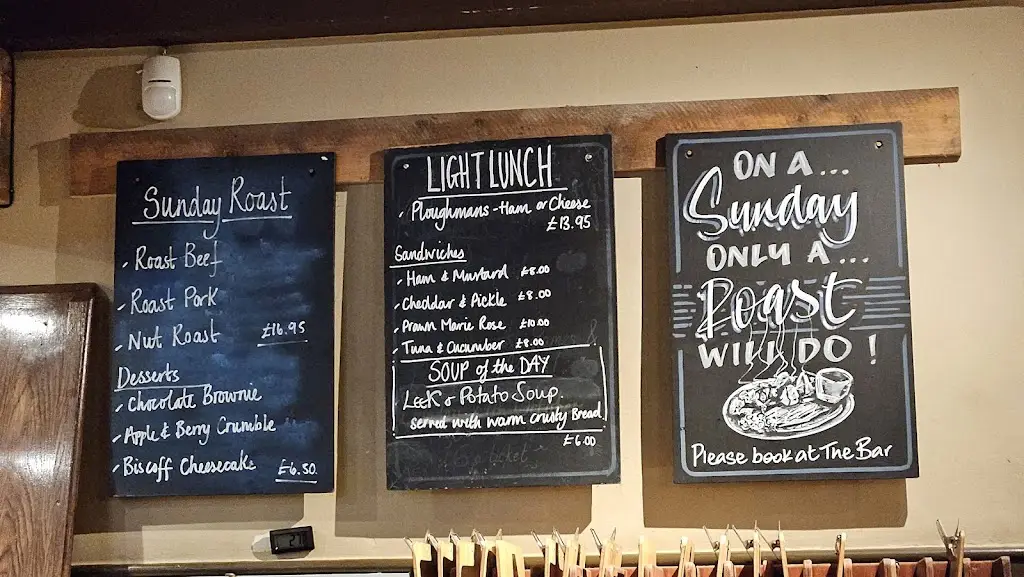 Sunday Roast
Roast Beef
Roast Pork
Nut Roast £16.95
Desserts
Chocolate Brownie
Apple & Berry Crumble
Biscoff Cheesecake £6.50
LIGHT LUNCH
Ploughmans - Ham or Cheese
£13.95
Sandwiches
Ham & Mustard £8.00
Cheddar & Pickle £8.00
Prawn Marie Rose £10.00
Tuna & Cucumber £8.00
SOUP of the DAY
Leek & Potato Soup.
served with warm crusty Bread
£6.00
ON A...
Sunday
ONLY A...
Roast
WILL DO!
Please book at The Bar